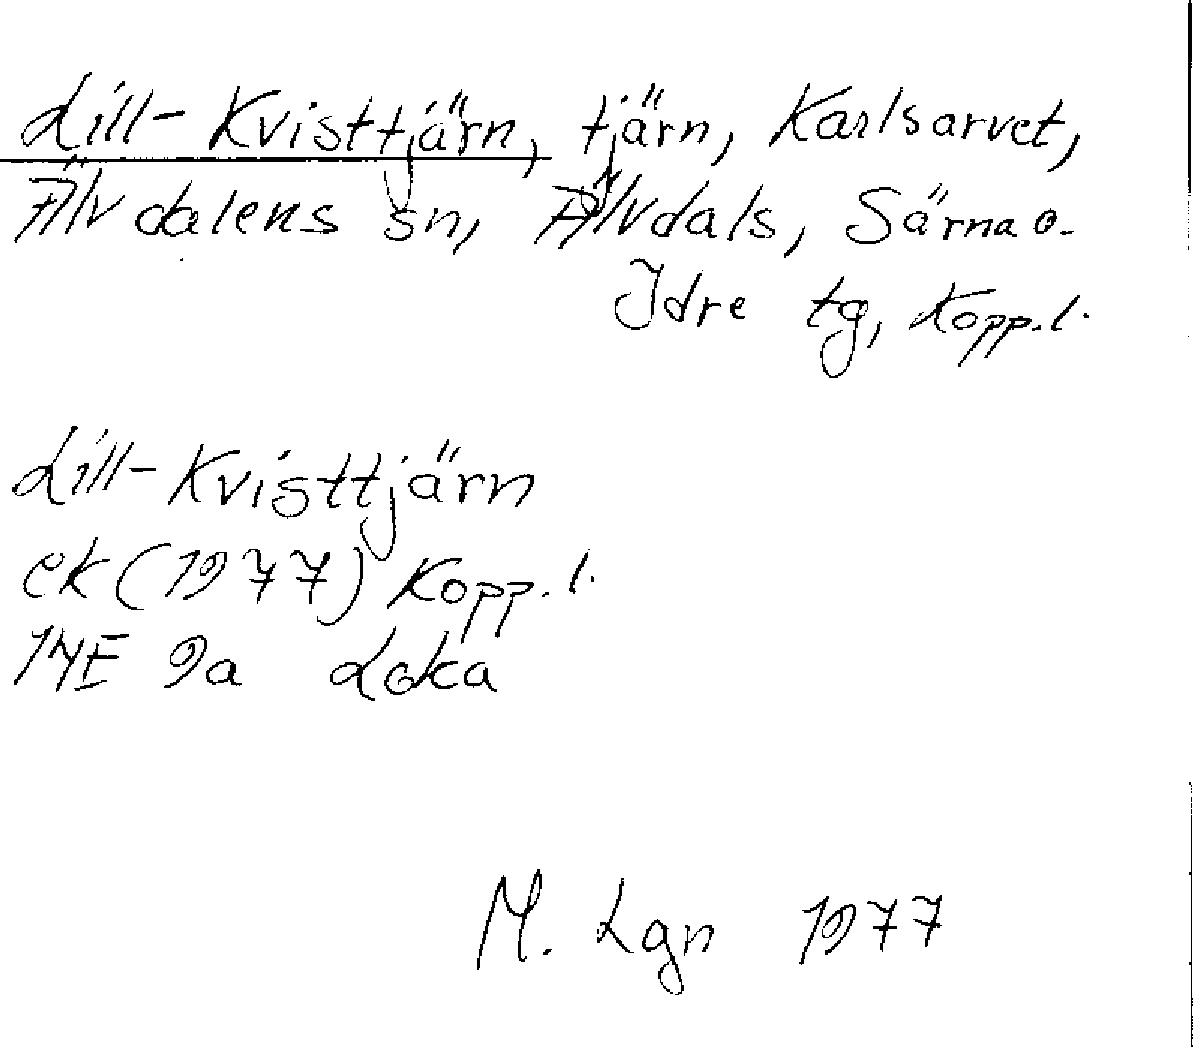 Lill-Kvisttjärn, tjärn, Karlsarvet,
Älvdalens sn, Älvdals, Särna o.
Idre tg, Kopp.l.
Lill-Kvisttjärn
ek (1977) Kopp.l.
14E 9a Loka
M. Lgn 1977